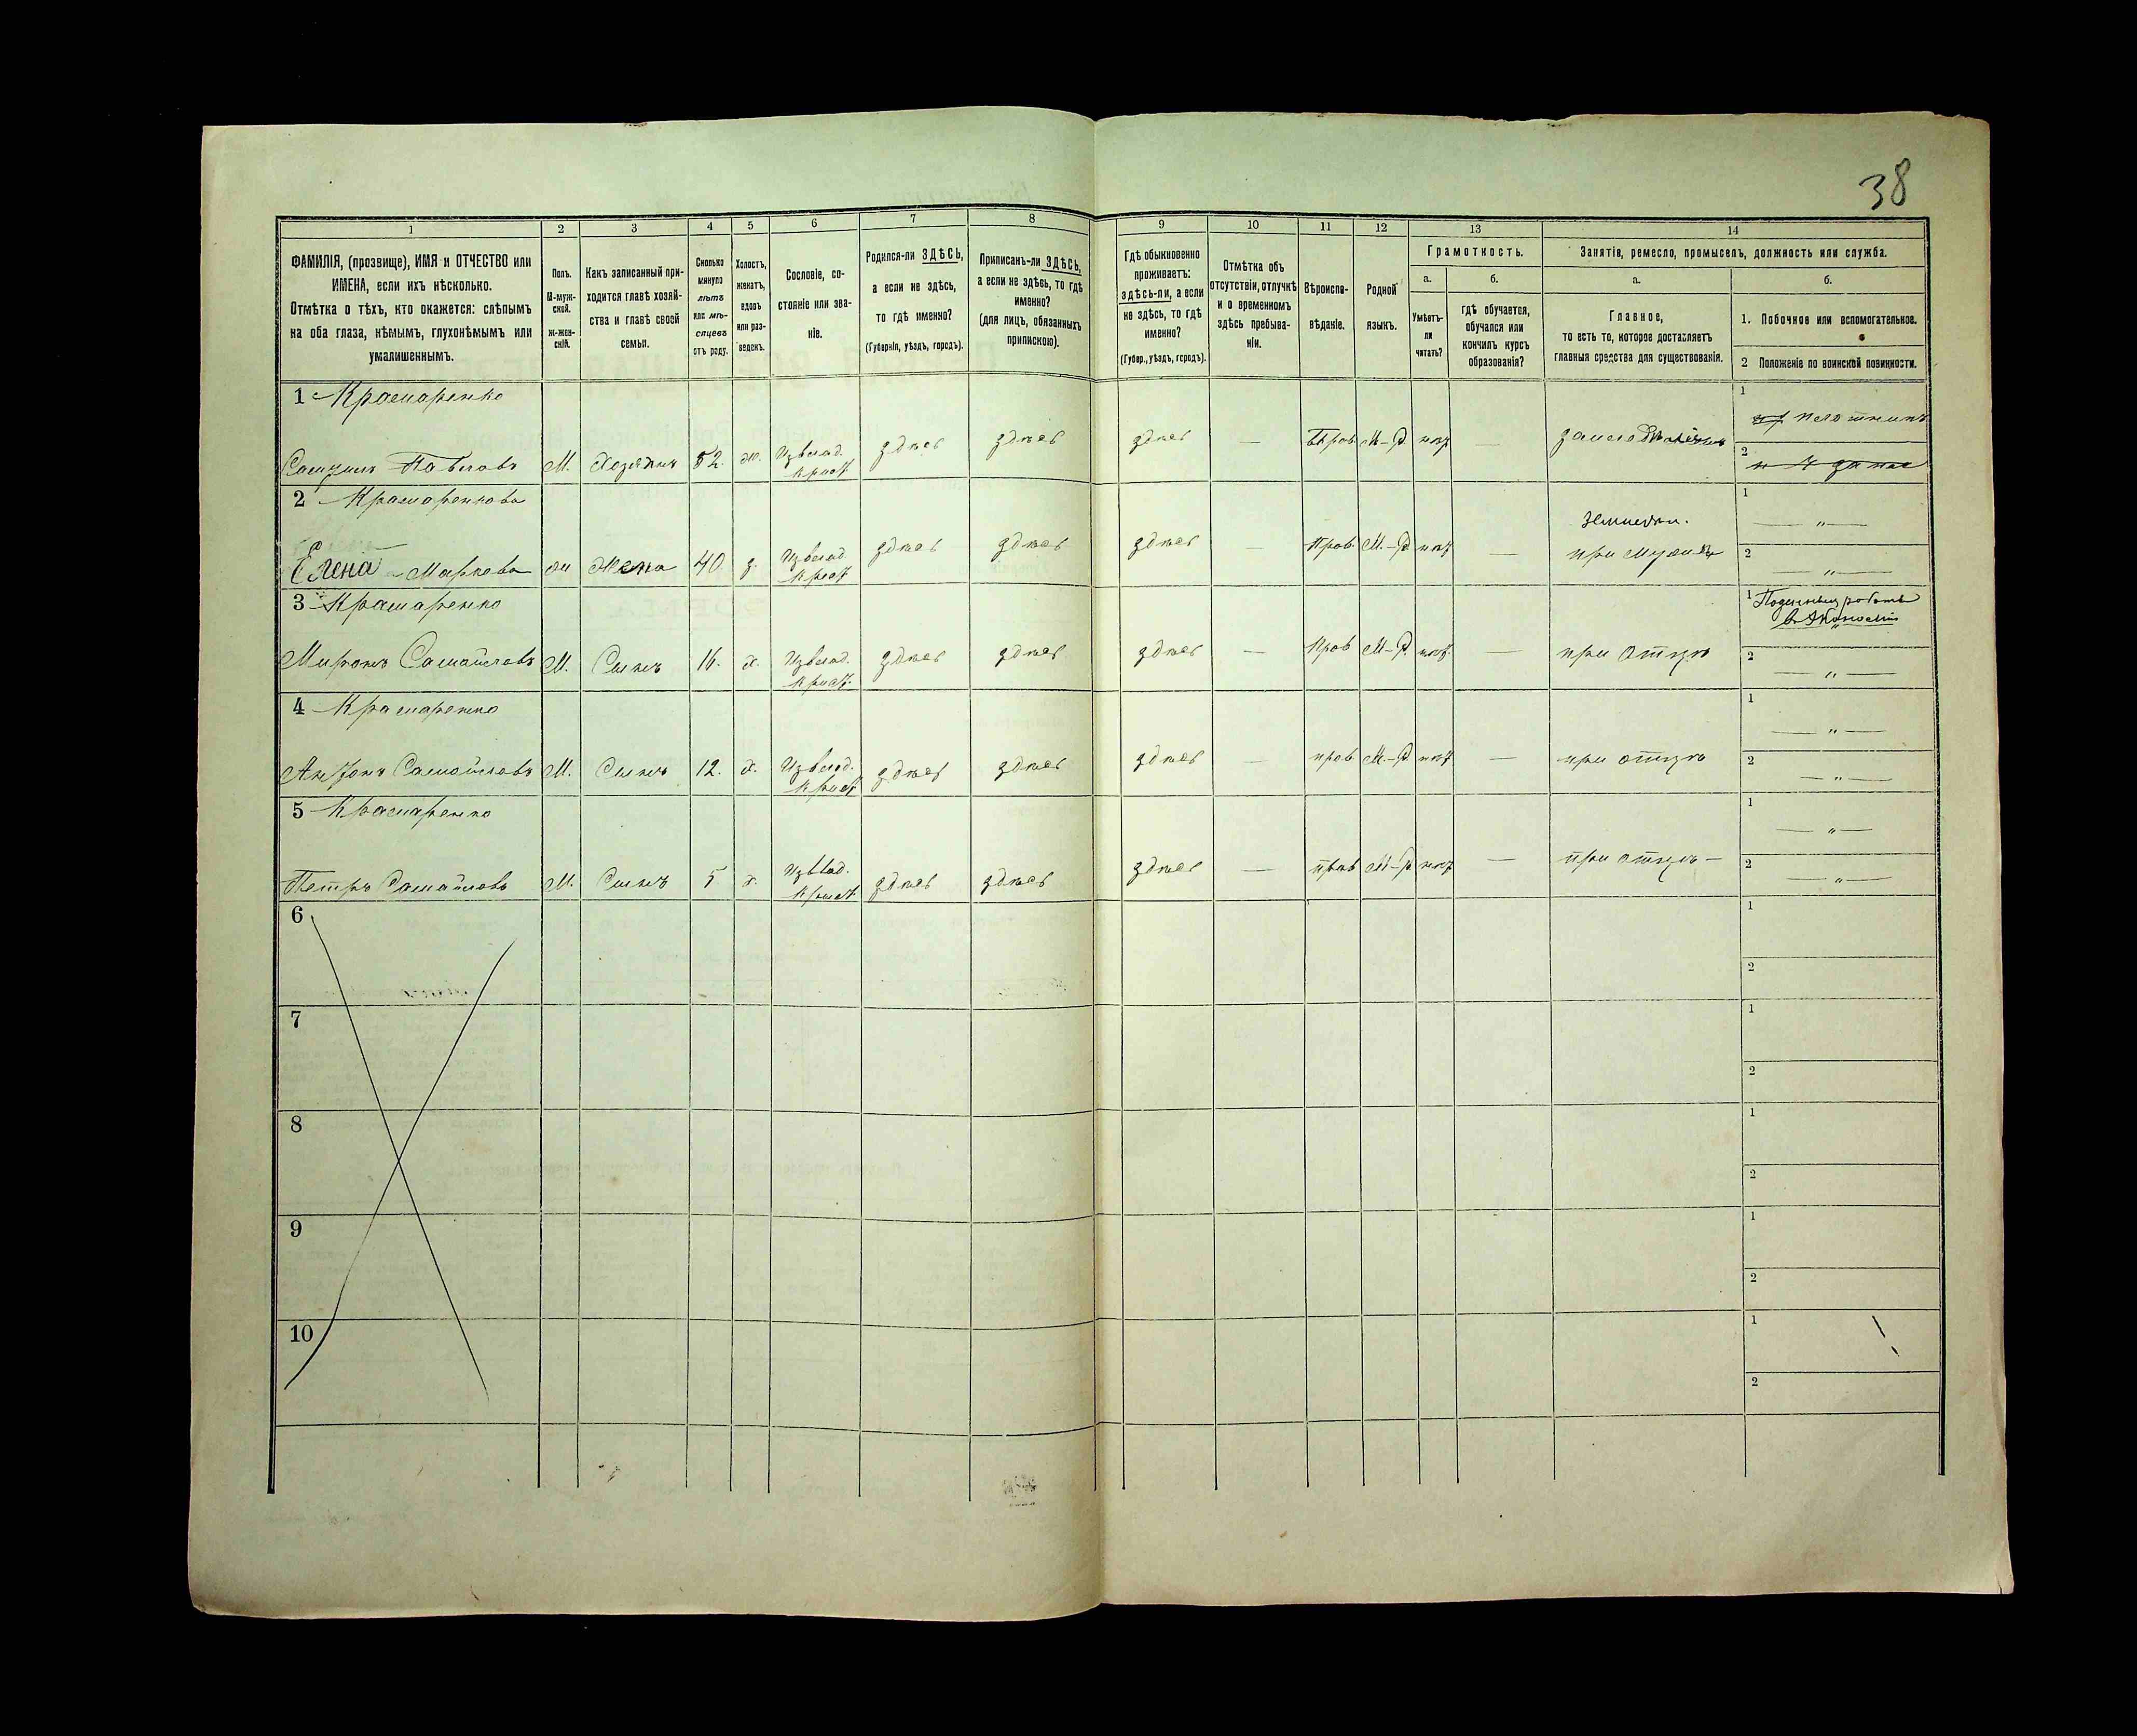 38
1 2 3 4 5 6 7 8 9 10 11 12 13 14
ФАМИЛІЯ, (прозвище), ИМЯ и ОТЧЕСТВО или
ИМЕНА, если ихъ нѣсколько.
Отмѣтка о тѣхъ, кто окажется: слѣпымъ
на оба глаза, нѣмымъ, глухонѣмымъ или
умалишеннымъ.
Полъ.
М-муж-
ской.
Ж-жен-
скій.
Какъ записанный при-
ходится главѣ хозяй-
ства и главѣ своей
семьи.
Сколько
минуло
лѣтъ
или мѣ-
сяцевъ
отъ роду.
Холостъ,
женатъ,
вдовъ
или раз-
веденъ.
Сословіе, со-
стояніе или зва-
ніе.
Родился-ли ЗДѢСЬ,
а если не здѣсь,
то гдѣ именно?
(Губернія, уѣздъ, городъ).
Приписанъ-ли ЗДѢСЬ,
а если не здѣсь, то гдѣ
именно?
(для лицъ, обязанныхъ
припискою).
Гдѣ обыкновенно
проживаетъ:
здѣсь-ли, а если
не здѣсь, то гдѣ
именно?
(Губер., уѣздъ, городъ).
Отмѣтка объ
отсутствіи, отлучкѣ
и о временномъ
здѣсь пребыва-
ніи.
Вѣроиспо-
вѣданіе.
Родной
языкъ.
Грамотность.
а.
Умѣетъ-
ли
читать?
б.
Гдѣ обучается,
обучался или
кончилъ курсъ
образованія?
Занятіе, ремесло, промыселъ, должность или служба.
а.
Главное,
то есть то, которое доставляетъ
главныя средства для существованія.
б.
1. Побочное или вспомогательное.
2 Положеніе по воинской повинности.
1 Крамаренко
Павловъ М. Хозяинъ 52. ж. Изъ влад. Крест. здѣсь здѣсь здѣсь — Прав М-Р нѣт — 1
2
2 Крамаренкова
Елена Маркова ж Жена 40. з. Изъ влад. Крест здѣсь здѣсь здѣсь — Прав. М.-Р нѣт — при мужѣ 1 — „ —
2 — „ —
3 Крамаренко
Миронъ Самойловъ М. Сынъ 16. х. Изъ влад. Крест. здѣсь здѣсь здѣсь — Прав М-Р. нѣт. — при отцѣ 1
2 — „ —
4 Крамаренко
Антонъ Самойловъ М. Сынъ 12. х. Изъ влад. Крест здѣсь здѣсь здѣсь — прав М.-Р нѣт — при отцѣ 1 — „ —
2 — „ —
5 Крамаренко
Петръ Самойловъ М. Сынъ 5 х. Изъ влад. Крест здѣсь здѣсь здѣсь — прав М-Р нѣт — при отцѣ — 1 — „ —
2 — „ —
6 1
2
7 1
2
8 1
2
9 1
2
10 1
2